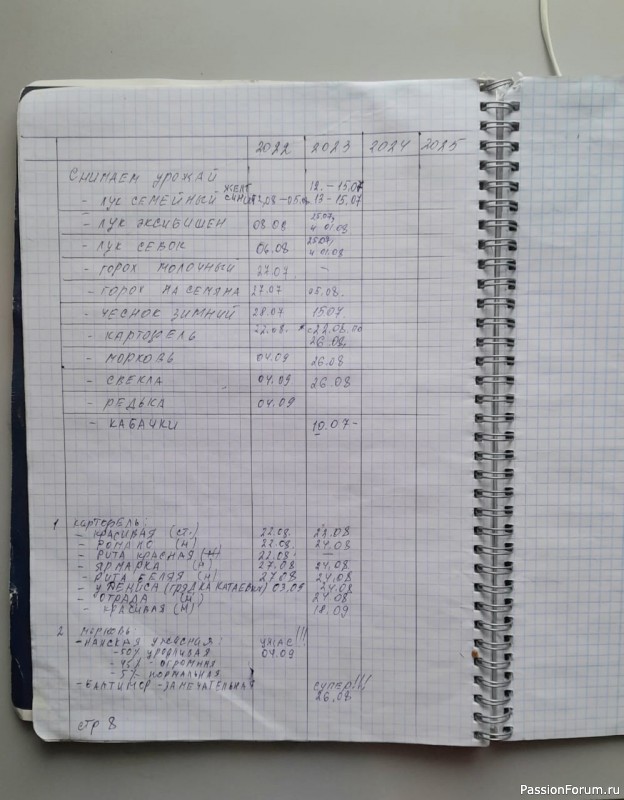 2022 2023 2024 2025
Снимаем урожай
- лук семейный желт 12.-15.07
13-15.07
- лук эксибишен 08.08 25.07, и 01.08
- лук севок 06.08 25.07, и 01.08
- горох молочный 27.07 -
- горох на семена 27.07 05.08.
- чеснок зимний 28.07 1507
- картофель 22.08. с 22.08 по 26.08,
- морковь 04.09 26.08
- свекла 04.09 26.08
- редька 04.09
- кабачки 10.07-
1 картофель:
- красивая (ст.) 22.08.
- (н) 22.08. 24.08
- рита красная 22.08. -
- ярмарка (н) 27.08 24.08
- рита белая (н) 27.08 24.08
- у Дениса (грядка Катаевых) 03.09 24.08
- отрада (н) 24.08
- красивая (н) 18.09
2 морковь:
- нанская ужасная: ужас!!!
- 50% уродливая 04.09
- 45% - огромная
- 5% - нормальная
- балтимор - замечательная супер!!!
26.08
стр 8
PassionForum.ru